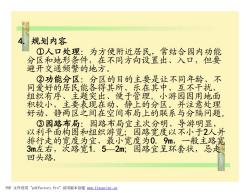 4、规划内容
①人口处理：为方便附近居民，常结合园内功能
分区和地形条件，在不同方向设置出、入口，但要
避开交通频繁的地方。
②功能分区：分区的目的主要是让不同年龄、不
同爱好的居民能各得其所、乐在其中、互不干扰、
组织有序、主题突出、便于管理。小游园因用地面
积较小，主要表现在动、静上的分区，并注意处理
好动、静两区之间在空间布局上的联系与分隔问题。
③园路布局：园路布局宜主次分明、导游明显，
以利平面构图和组织游览；园路宽度以不小于2人并
排行走的宽度为宜，最小宽度为0.9m，一般主路宽
3m左右，次路宽1.5—2m；园路宜呈环套状，忌走
回头路。
PDF 文件使用 "pdfFactory Pro" 试用版本创建 www.fineprint.cn